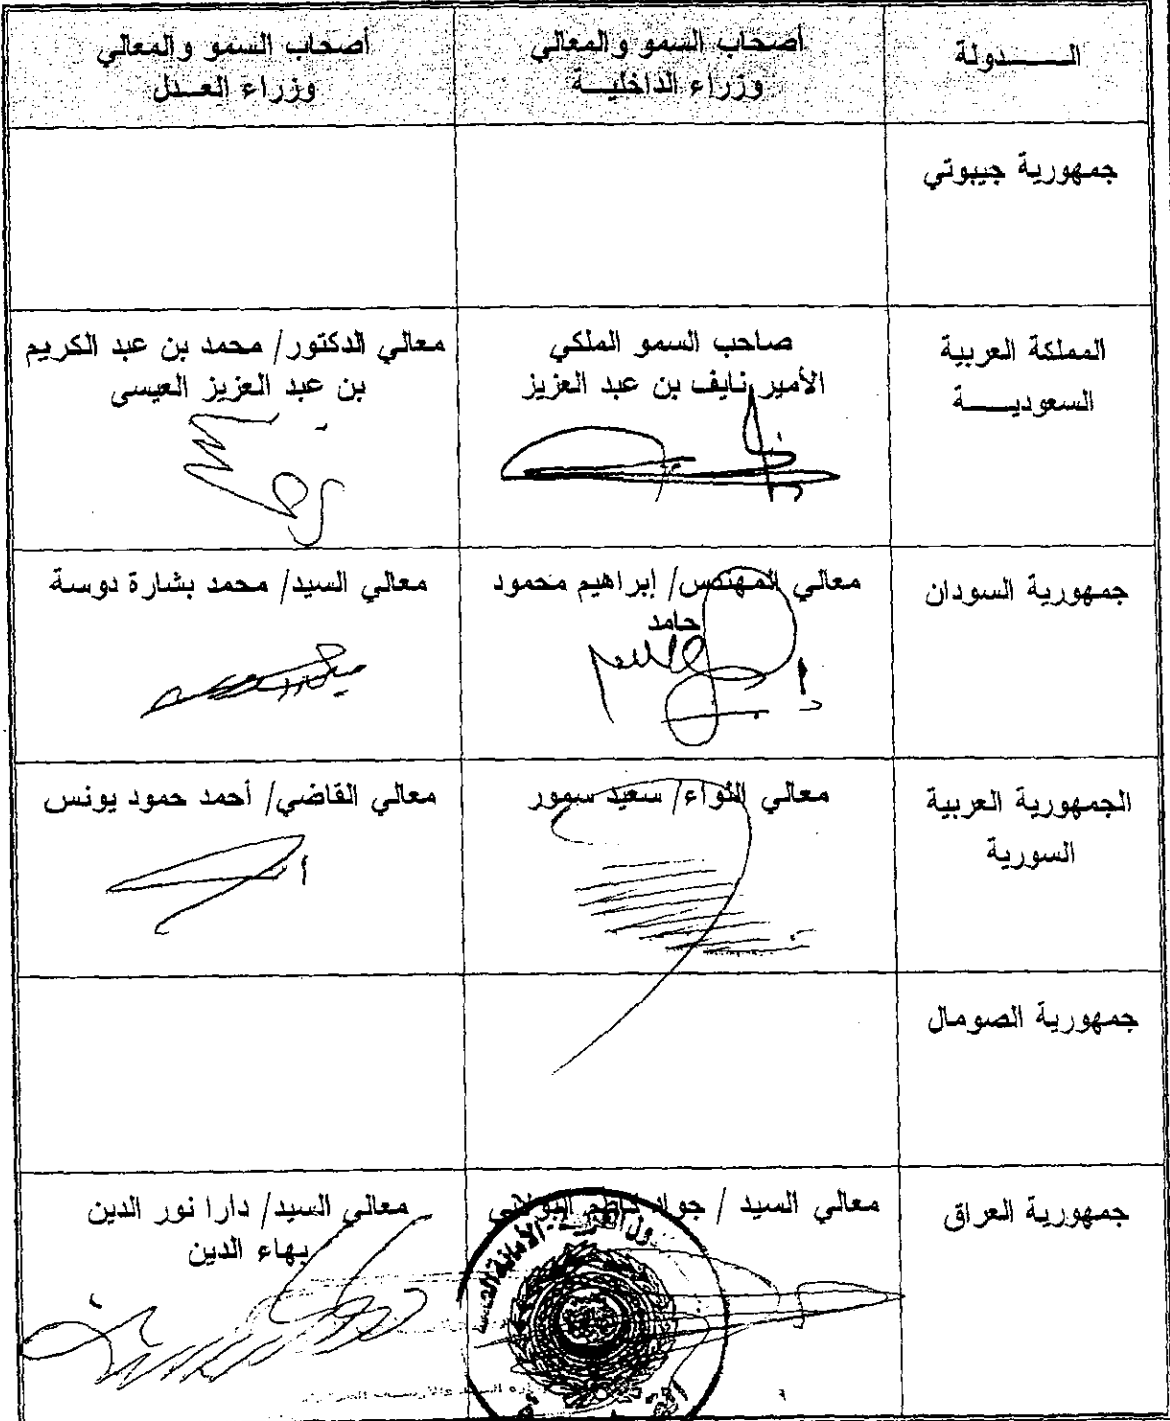 الـــــدولة
أصحاب السمو والمعالي
وزراء الداخليـــة
أصحاب السمو والمعالي
وزراء العــدل
جمهورية جيبوتي
المملكة العربية
السعوديـــــة
صاحب السمو الملكي
الأمير نايف بن عبد العزيز
معالي الدكتور/ محمد بن عبد الكريم
بن عبد العزيز العيسى
جمهورية السودان
معالي المهندس/ إبراهيم محمود
حامد
معالي السيد/ محمد بشارة دوسة
الجمهورية العربية
السورية
معالي اللواء/ سعيد سمور
معالي القاضي/ أحمد حمود يونس
جمهورية الصومال
جمهورية العراق
معالي السيد / جواد كاظم البولاني
معالي السيد/ دارا نور الدين
بهاء الدين